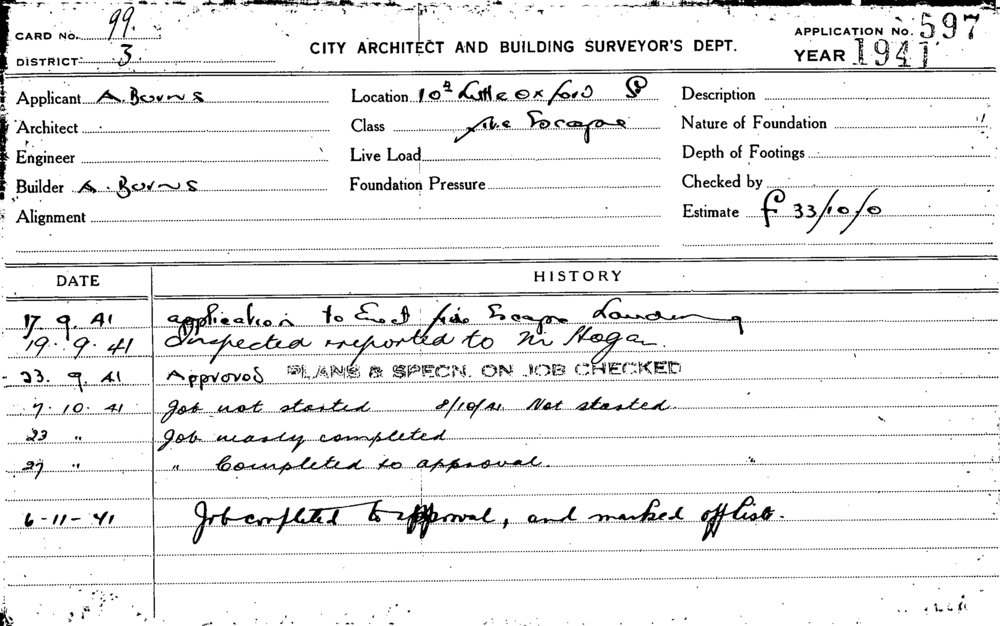 CARD No. 99.
DISTRICT 3
CITY ARCHITECT AND BUILDING SURVEYOR'S DEPT.
APPLICATION No. 597
YEAR 1941
Applicant A. Burns
Location 10ª Little Oxford St
Description
Architect
Class fire Escape
Nature of Foundation
Engineer
Live Load
Depth of Footings
Builder A. Burns
Foundation Pressure
Checked by
Alignment
Estimate £ 33/10/0
DATE HISTORY
17. 9. 41 application to Erect fire Escape Landing
19. 9. 41 Inspected & reported to Mr Hogan.
23. 9. 41 Approved PLANS & SPECN. ON JOB CHECKED
7. 10. 41 Job not started 8/10/41 Not started.
23 " Job nearly completed
27 " " Completed to approval.
6-11-41 Job completed to approval, and marked off list.